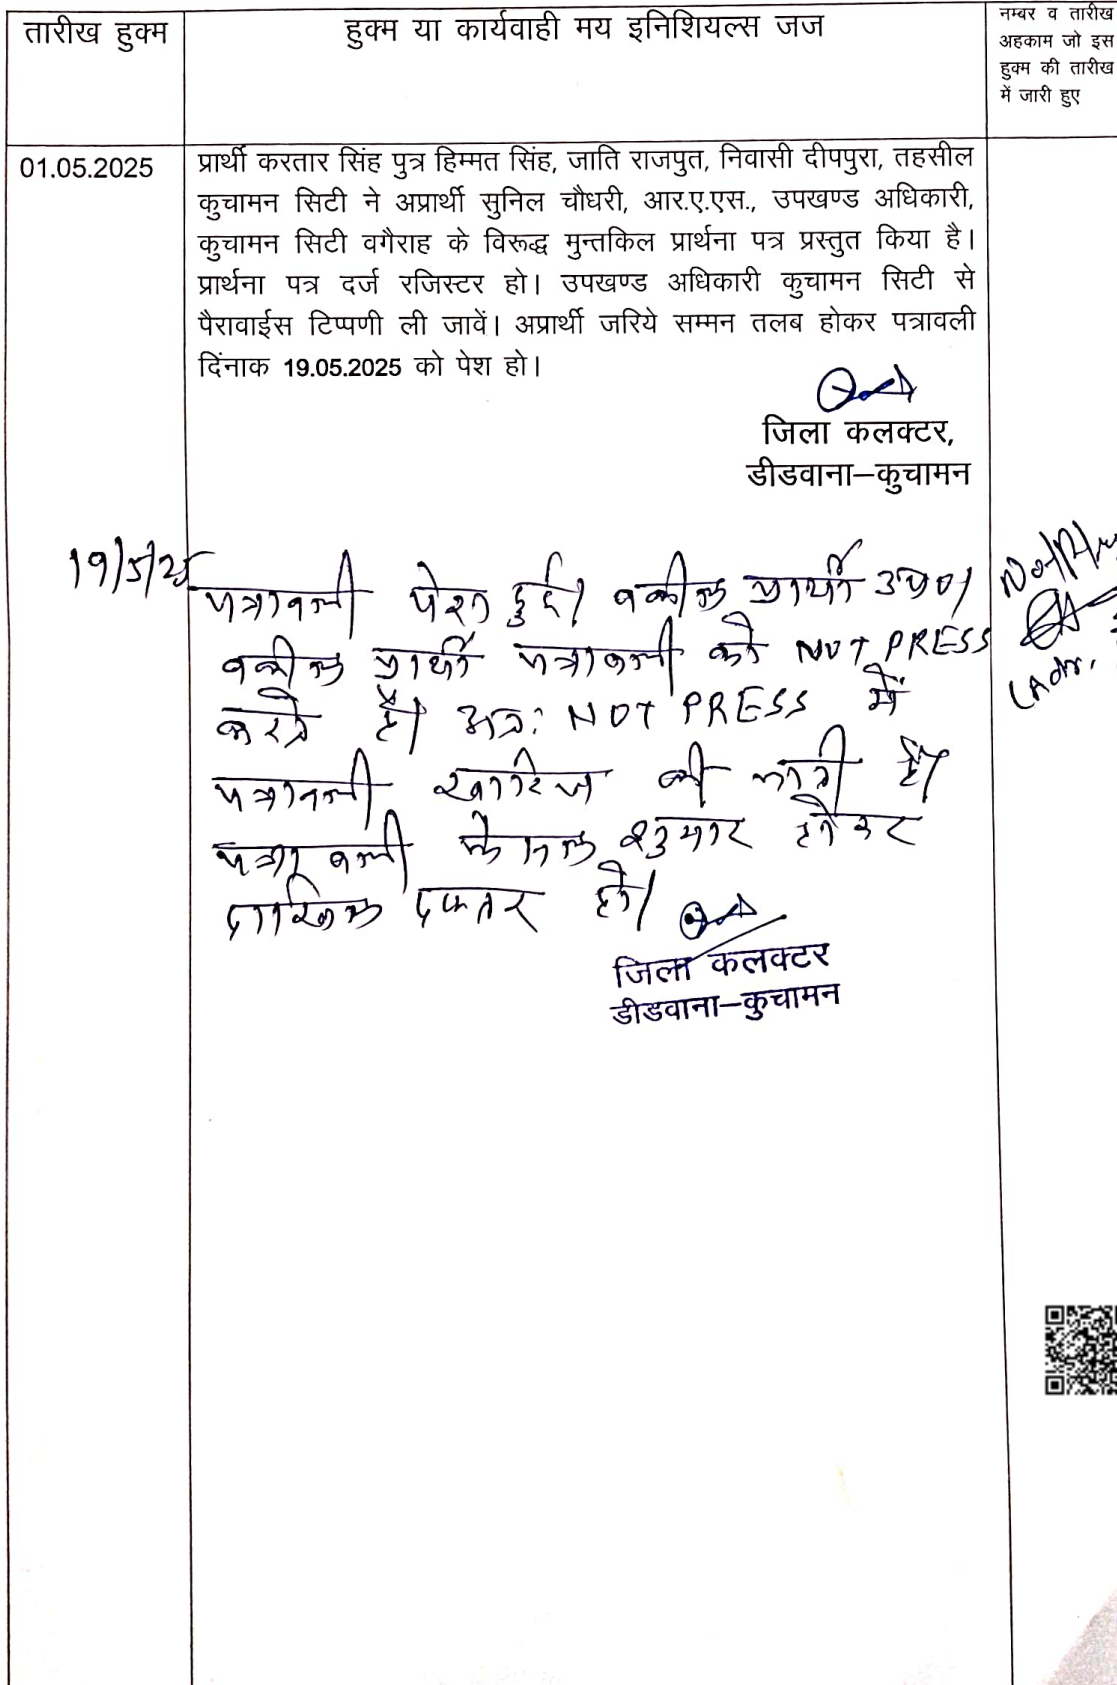 तारीख हुक्म
हुक्म या कार्यवाही मय इनिशियल्स जज
नम्बर व तारीख
अहकाम जो इस
हुक्म की तारीख
में जारी हुए
01.05.2025
प्रार्थी करतार सिंह पुत्र हिम्मत सिंह, जाति राजपुत, निवासी दीपपुरा, तहसील
कुचामन सिटी ने अप्रार्थी सुनिल चौधरी, आर.ए.एस., उपखण्ड अधिकारी,
कुचामन सिटी वगैराह के विरूद्ध मुन्तकिल प्रार्थना पत्र प्रस्तुत किया है।
प्रार्थना पत्र दर्ज रजिस्टर हो। उपखण्ड अधिकारी कुचामन सिटी से
पैरावाईस टिप्पणी ली जावें। अप्रार्थी जरिये सम्मन तलब होकर पत्रावली
दिंनाक 19.05.2025 को पेश हो।
जिला कलक्टर,
डीडवाना–कुचामन
19/5/25
पत्रावली पेश हुई। वकील प्रार्थी उप०।
वकील प्रार्थी पत्रावली को NOT PRESS
करते है। अतः NOT PRESS में
पत्रावली खारिज की जाती है।
पत्रावली फैसल शुमार होकर
दाखिल दफ्तर हो।
जिला कलक्टर
डीडवाना–कुचामन